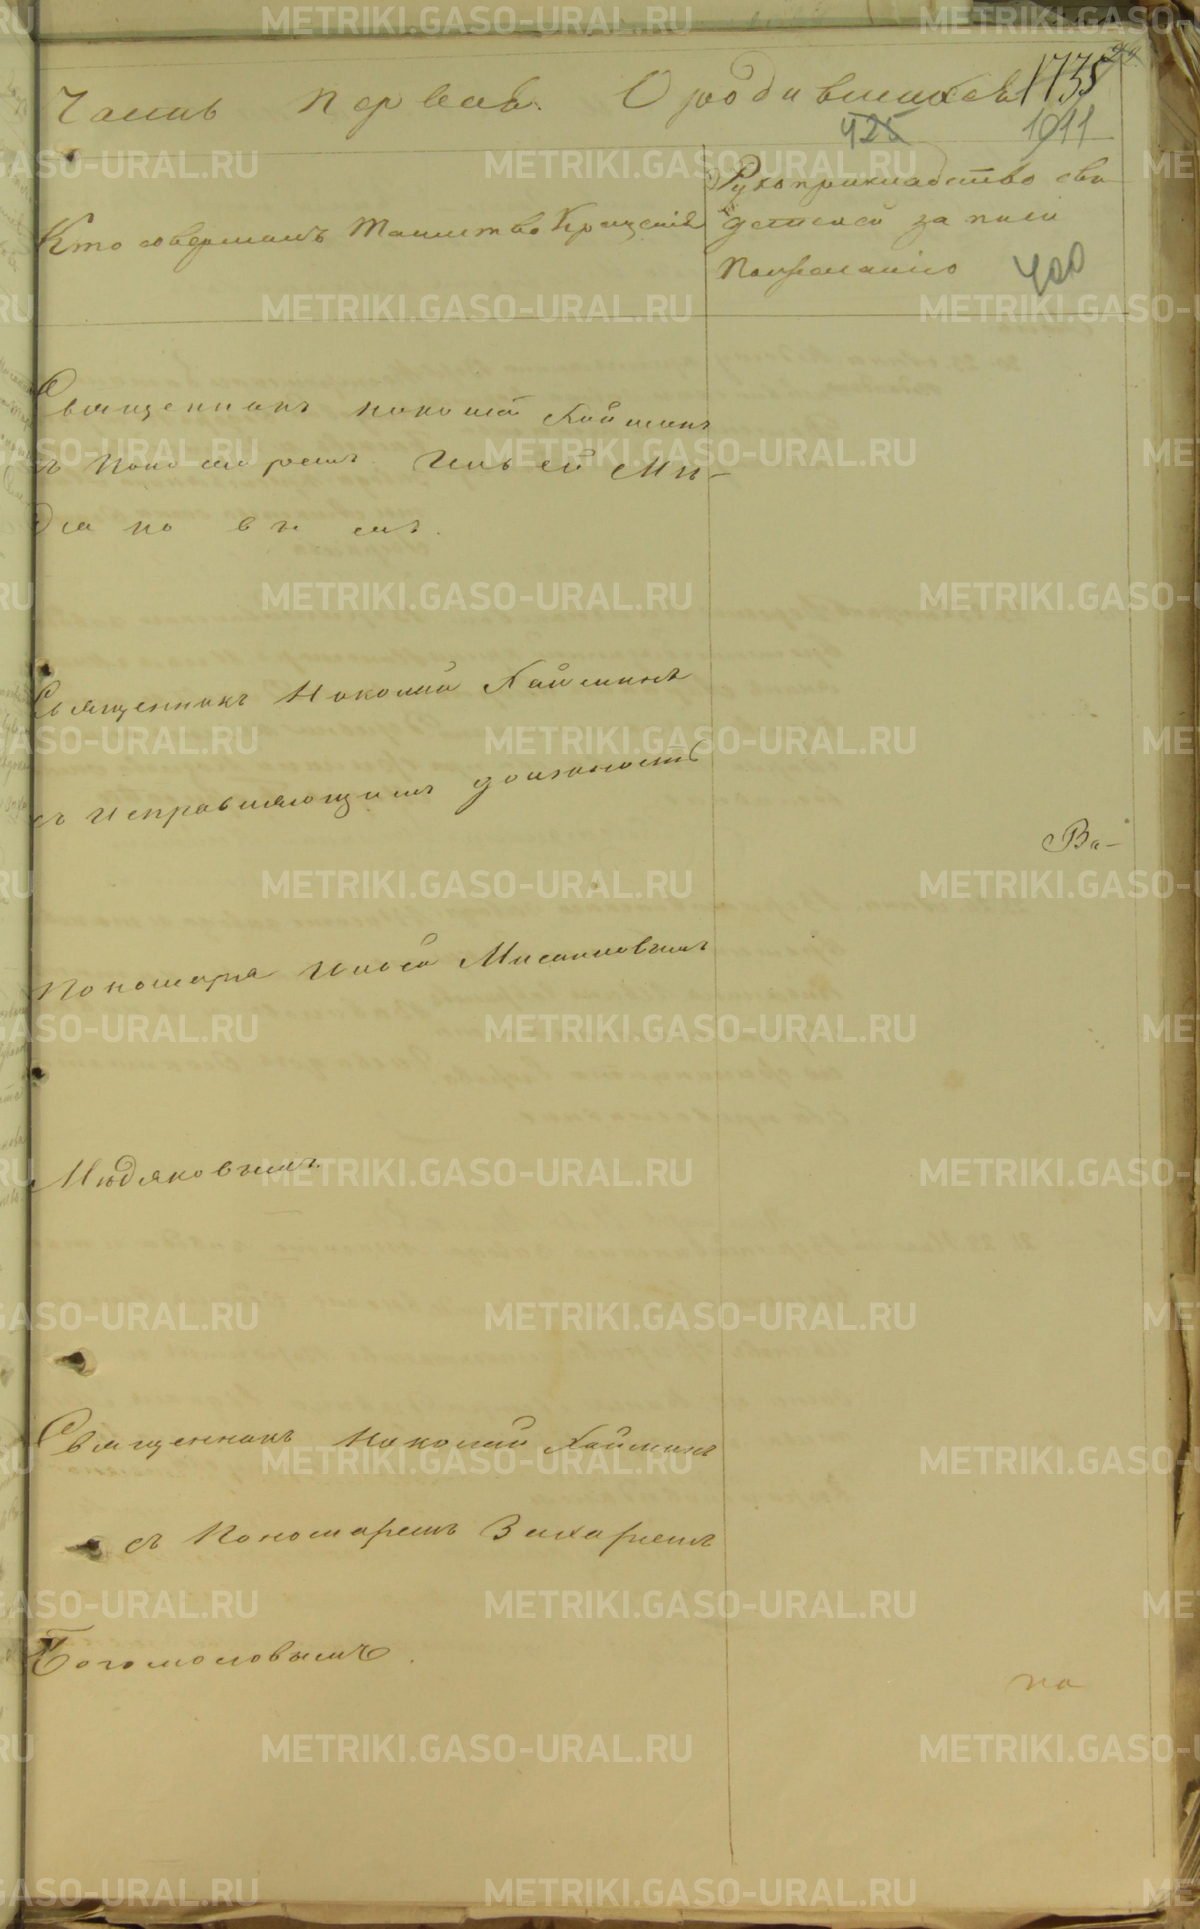 Часть первая. О родившихся 1735
425 1011
Кто совершалъ Таинство Крещенія
Рукоприкладство сви
детелей за писи
по желанію 400
Священникъ Николай Хаймин
съ Пономаремъ Ильей Мю-
дяковымъ.
Священникъ Николай Хайминъ
съ исправляющимъ должность
Ва-
Пономаря Ильей Мисаиловымъ
Мюдяковымъ.
Священникъ Николай Хайминъ
съ Пономаремъ Захаріемъ
Богомоловымъ.
по
METRIKI.GASO-URAL.RU